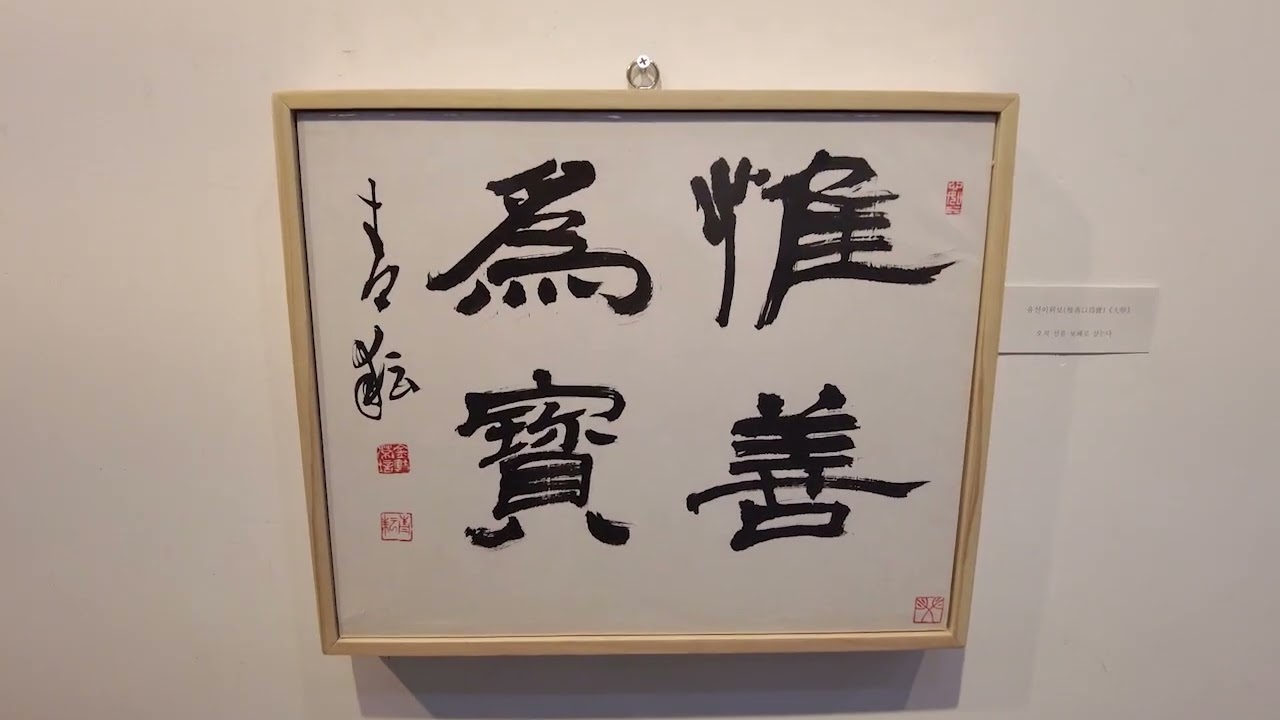 惟善
為寶
青耘
青耘
유선이위보(惟善以爲寶)《大學》
오직 선을 보배로 삼는다